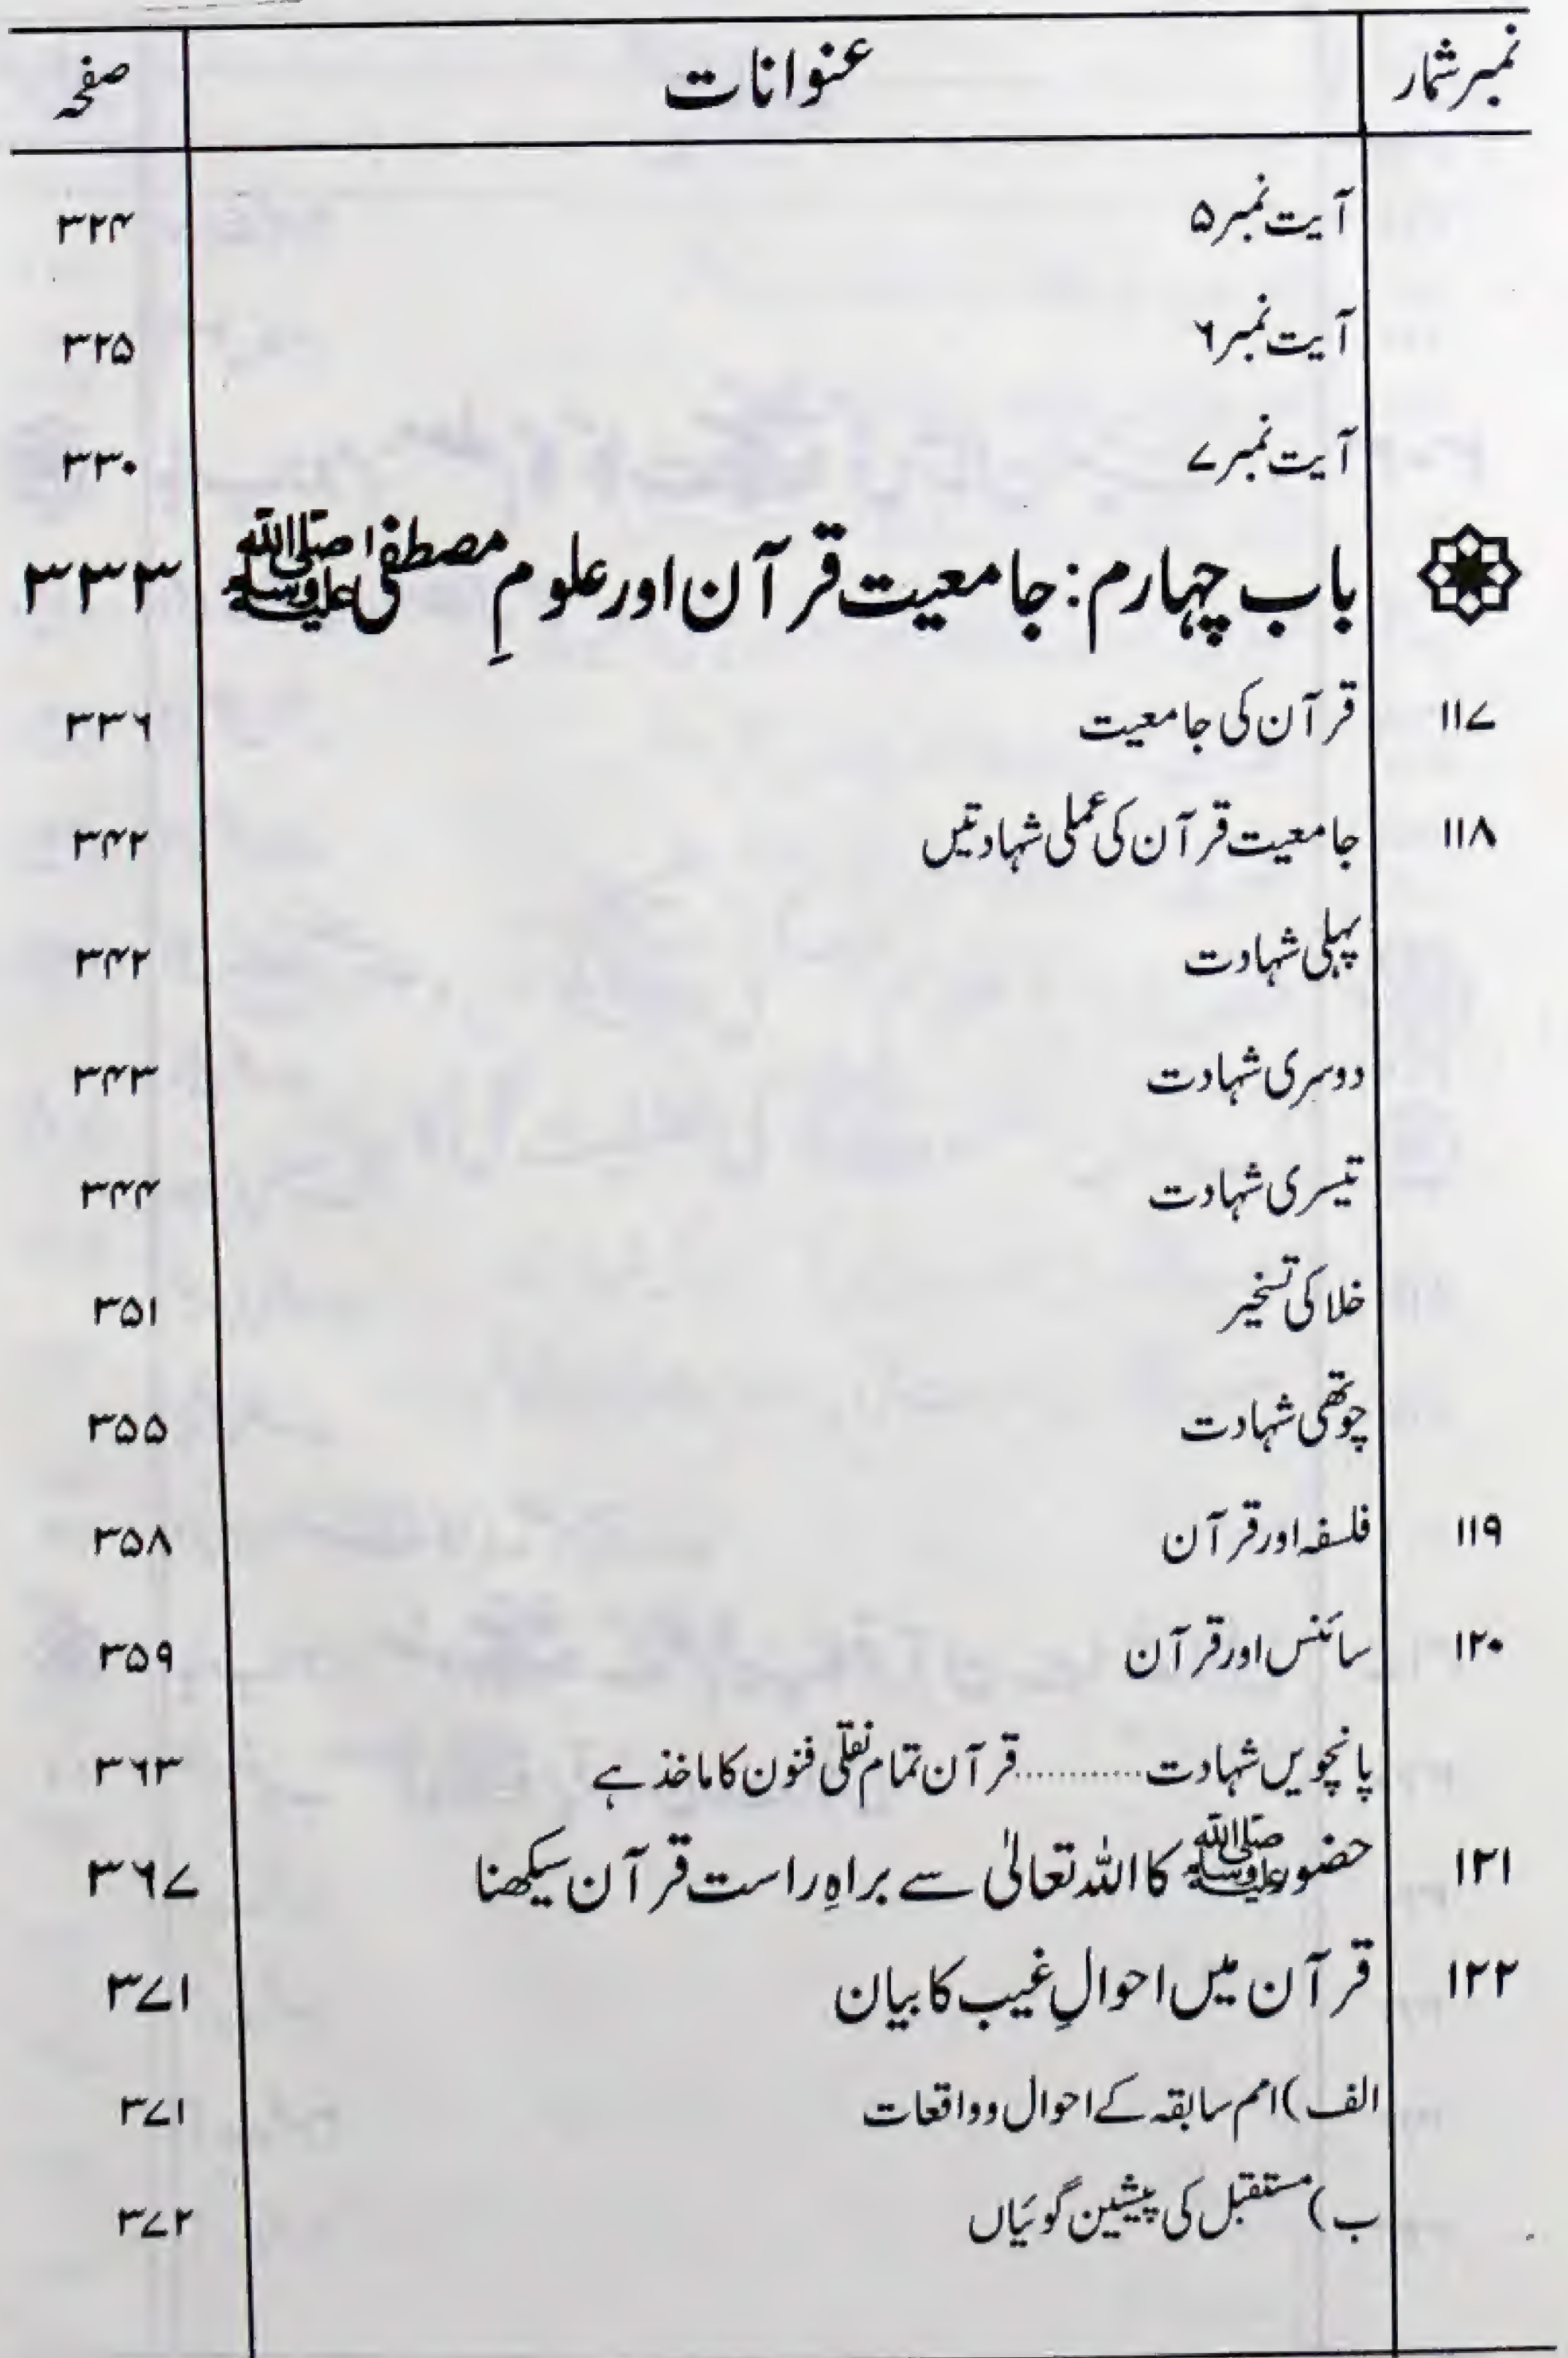 نمبر شمار عنوانات صفحہ
آیت نمبر ۵ ۳۲۴
آیت نمبر ۶ ۳۲۵
آیت نمبر ۷ ۳۳۰
باب چہارم: جامعیت قرآن اور علومِ مصطفیٰ ﷺ ۳۳۳
۱۱۷ قرآن کی جامعیت ۳۳۶
۱۱۸ جامعیت قرآن کی عملی شہادتیں ۳۴۲
پہلی شہادت ۳۴۲
دوسری شہادت ۳۴۳
تیسری شہادت ۳۴۴
خلا کی تسخیر ۳۵۱
چوتھی شہادت ۳۵۵
۱۱۹ فلسفہ اور قرآن ۳۵۸
۱۲۰ سائنس اور قرآن ۳۵۹
پانچویں شہادت............قرآن تمام نقلی فنون کا ماخذ ہے ۳۶۳
۱۲۱ حضور ﷺ کا اللہ تعالیٰ سے براہِ راست قرآن سیکھنا ۳۶۷
۱۲۲ قرآن میں احوالِ غیب کا بیان ۳۷۱
الف) امم سابقہ کے احوال و واقعات ۳۷۱
ب) مستقبل کی پیشین گوئیاں ۳۷۲